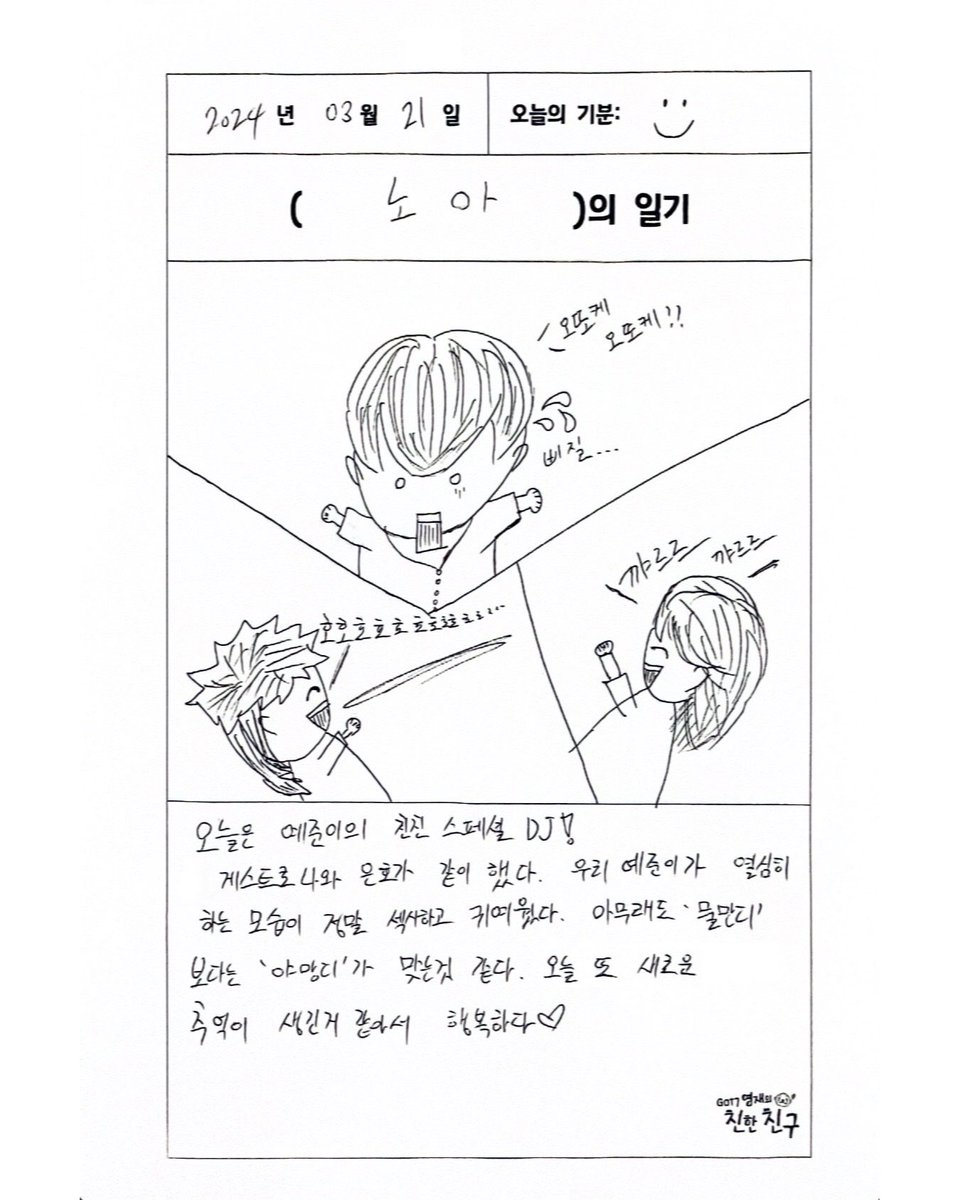 2024 년 03 월 21 일 오늘의 기분:
( 노아 )의 일기
오또케
오또케!!
삐질...
꺄르르 꺄르르
오늘은 예준이의 친친 스페셜 DJ!
게스트로 나와 은호가 같이 했다. 우리 예준이가 열심히
하는 모습이 정말 섹시하고 귀여웠다. 아무래도 '물만디'
보다는 '야망디'가 맞는것 같다. 오늘 또 새로운
추억이 생긴거 같아서 행복하다♡
GOT7 영재의
친한친구